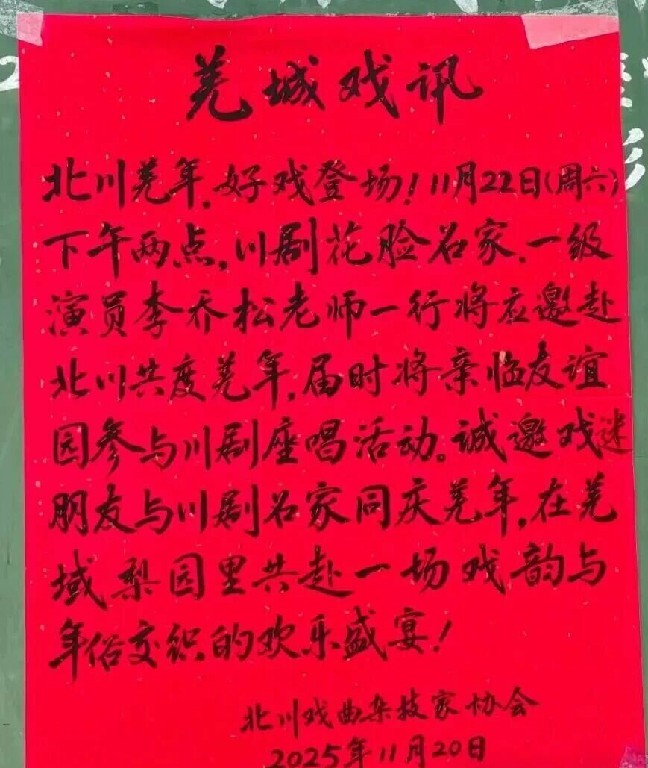 羌城戏讯
北川羌年,好戏登场!11月22日(周六)
下午两点,川剧花脸名家.一级
演员李乔松老师一行将应邀赴
北川共度羌年,届时将亲临友谊
园参与川剧座唱活动。诚邀戏迷
朋友与川剧名家同庆羌年,在羌
域梨园里共赴一场戏韵与
年俗交织的欢乐盛宴!
北川戏曲杂技家协会
2025年11月20日